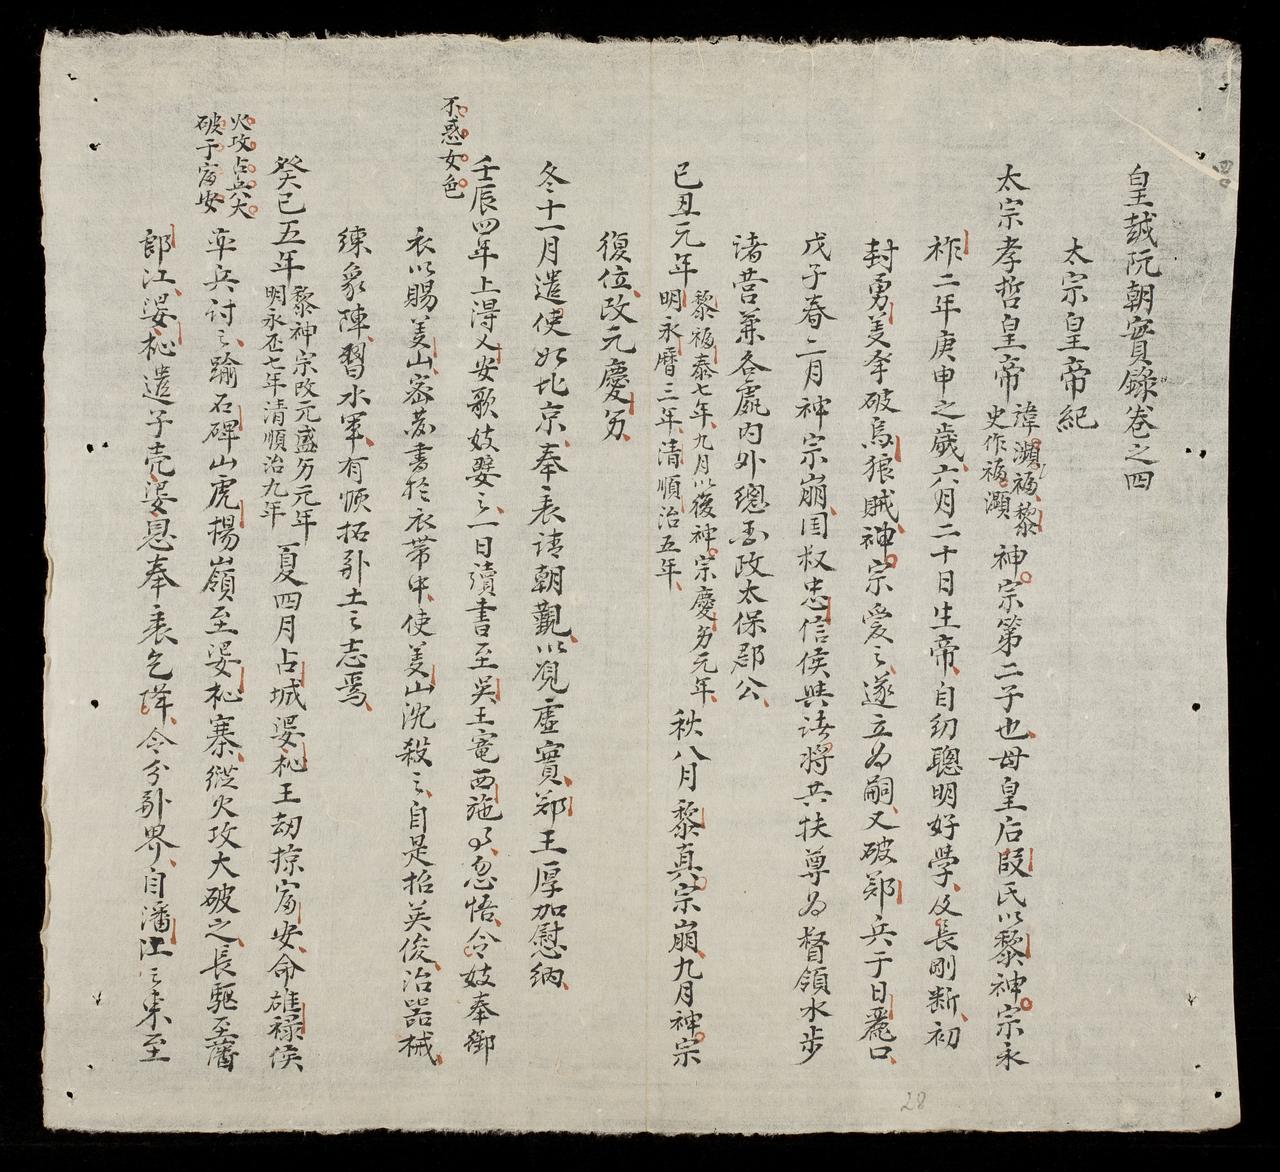 皇越阮朝實錄卷之四
太宗皇帝紀
太宗孝哲皇帝諱瀕福黎史作福瀕神宗第二子也母皇后段氏以黎神宗永
祚二年庚申之歲六月二十日生帝自幼聰明好學及長剛断初
封勇美侯破烏狼賊神宗爱之遂立為嗣又破鄭兵于日麗口
戊子春二月神宗崩国叔忠信侯與諸將共扶尊為督領水步
諸营兼各處内外總国政太保郡公
已丑元年黎福泰七年九月以後神宗慶㐱元年明永曆三年清順治五年秋八月黎真宗崩九月神宗
復位改元慶㐱
冬十一月遣使如北京奉表请朝覲以覘虛實鄭王厚加慰纳
不惑女色
壬辰四年上得乂安歌妓嬖之一日讀書至吳王寵西施事忽悟令妓奉御
衣以賜美山密藏書於衣带中使美山沈殺之自是招英俊治器械
練象陣習水軍有慨拓卦土之志焉
癸已五年黎神宗改元盛㐱元年明永丕七年清順治九年夏四月占城婆杺王劫掠富安命雄禄侯
火攻占兵大
破于富安
率兵討之踰石碑山虎揚嶺至婆杺寨縱火攻大破之長驅至潘
郎江婆杺遣子壳婆恩奉表乞降令分卦界自潘江之東至